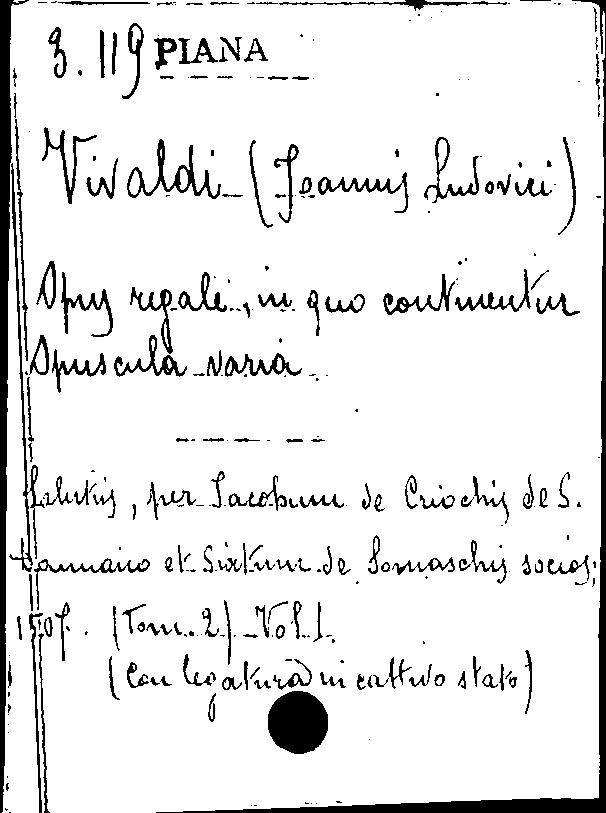 3. 119 PIANA
Vivaldi (Joannis Ludovici)
Opus regale, in quo continentur
Opuscula varia.
Salutiis, per Jacobum de Circhis de S.
Dannaico et Sixtum de Somaschis socios,
1507. (Tom. 2) Vol 1.
(Con legatura in cattivo stato)